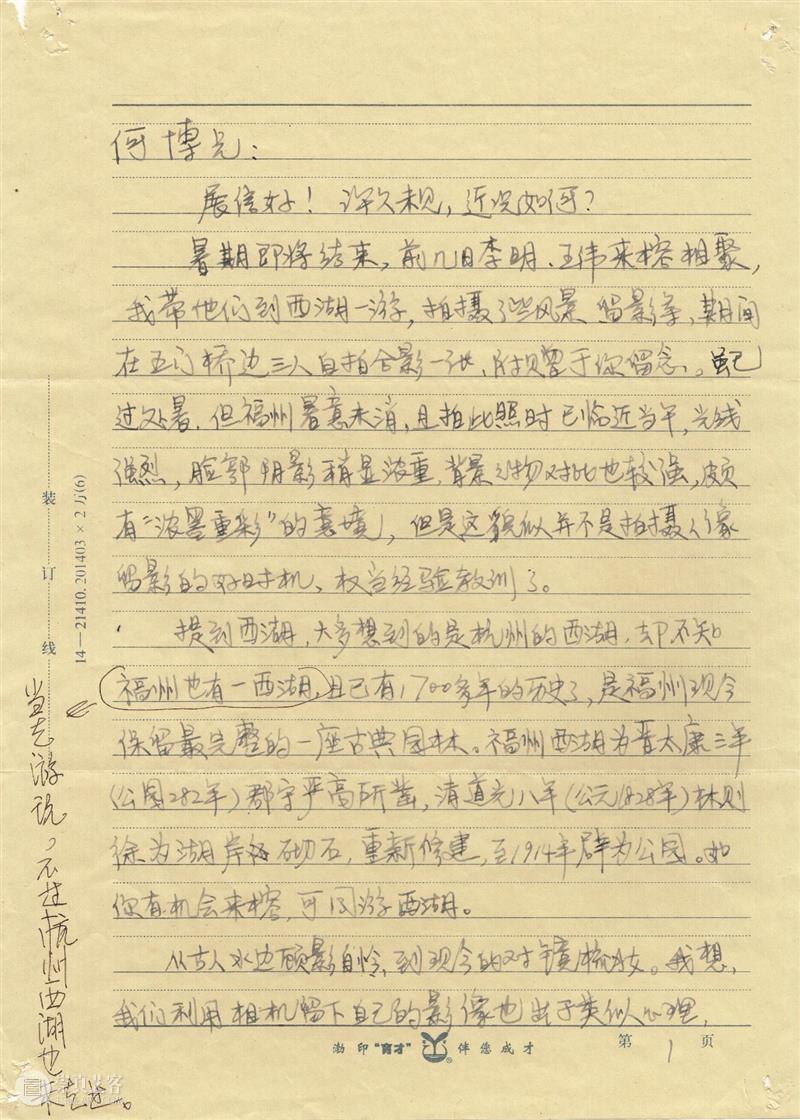 何博兄：
展信好！许久未见，近况如何？
暑期即将结束，前几日李明、王伟来榕相聚，
我带他们到西湖一游，拍摄了些风景、留影等，期间
在五门桥边三人自拍合影一张，附赠于你留念。虽已
过处暑，但福州暑意未消，且拍此照时已临近当午，光线
强烈，脸部阴影稍显浓重，背景人物对比也较强，颇
有“浓墨重彩”的意境，但是这貌似并不是拍摄人像
留影的好时机，权当经验教训了。
提到西湖，大多想到的是杭州的西湖，却不知
福州也有一西湖，且已有1700多年的历史了，是福州现今
保留最完整的一座古典园林。福州西湖为晋太康三年
（公园282年）郡守严高所凿，清道光八年（公元1828年）林则
徐为湖岸砌石，重新修建，至1914年辟为公园。如
你有机会来榕，可同游西湖。
从古人水边顾影自怜，到现今的对镜梳妆。我想，
我们利用相机留下自己的影像也出于类似心理，
当去游玩，不过杭州西湖也
去过。
装 订 线
14—21410.201403×2万(6)
渤印“育才” ® 伴您成才
第 1 页